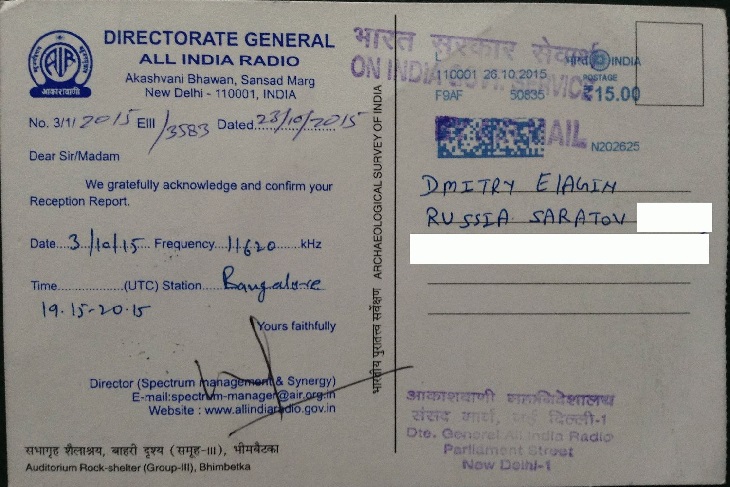 AIR
आकाशवाणी
DIRECTORATE GENERAL
ALL INDIA RADIO
Akashvani Bhawan, Sansad Marg
New Delhi - 110001, INDIA
No. 3/1/2015 EIII /3583 Dated..23/10/2015
Dear Sir/Madam
We gratefully acknowledge and confirm your
Reception Report.
Date....3/10/15..Frequency....11620......kHz
Time................(UTC) Station....Bangalore
19.15-20.15
Yours faithfully
Director (Spectrum management & Synergy)
E-mail:spectrum-manager@air.org.in
Website : www.allindiaradio.gov.in
सभागृह शैलाश्रय, बाहरी दृश्य (समूह-III), भीमबैटका
Auditorium Rock-shelter (Group-III), Bhimbetka
भारतीय पुरातत्त्व सर्वेक्षण ARCHAEOLOGICAL SURVEY OF INDIA
भारत सरकार सेवार्थ
ON INDIA GOVT. SERVICE
L
110001 26.10.2015
F9AF 50835
भारत INDIA
POSTAGE
₹15.00
AIL
N202625
DMITRY ELAGIN
RUSSIA SARATOV
आकाशवाणी महानिदेशालय
संसद मार्ग, नई दिल्ली-1
Dte. General All India Radio
Parliament Street
New Delhi-1